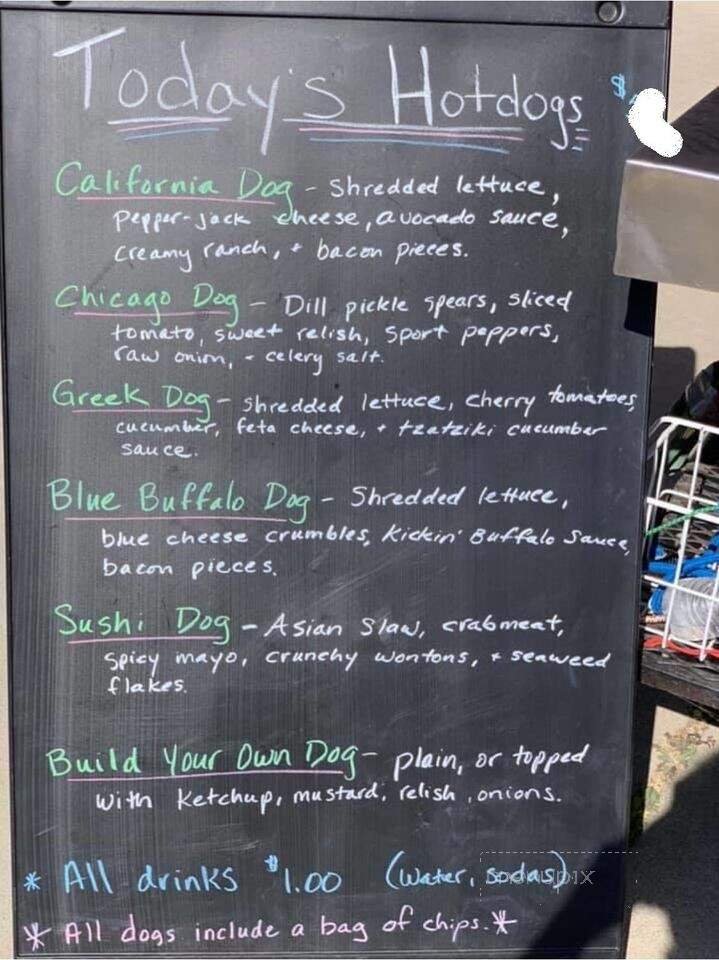 Today's Hotdogs $
California Dog - Shredded lettuce,
pepper-jack cheese, avocado sauce,
creamy ranch, + bacon pieces.
Chicago Dog - Dill pickle spears, sliced
tomato, sweet relish, sport peppers,
raw onion, + celery salt.
Greek Dog - shredded lettuce, cherry tomatoes,
cucumber, feta cheese, + tzatziki cucumber
sauce.
Blue Buffalo Dog - Shredded lettuce,
blue cheese crumbles, Kickin' Buffalo Sauce,
bacon pieces.
Sushi Dog - Asian Slaw, crabmeat,
spicy mayo, crunchy wontons, + seaweed
flakes.
Build Your Own Dog - plain, or topped
with ketchup, mustard, relish, onions.
* All drinks $1.00 (water, sodas)
* All dogs include a bag of chips. *